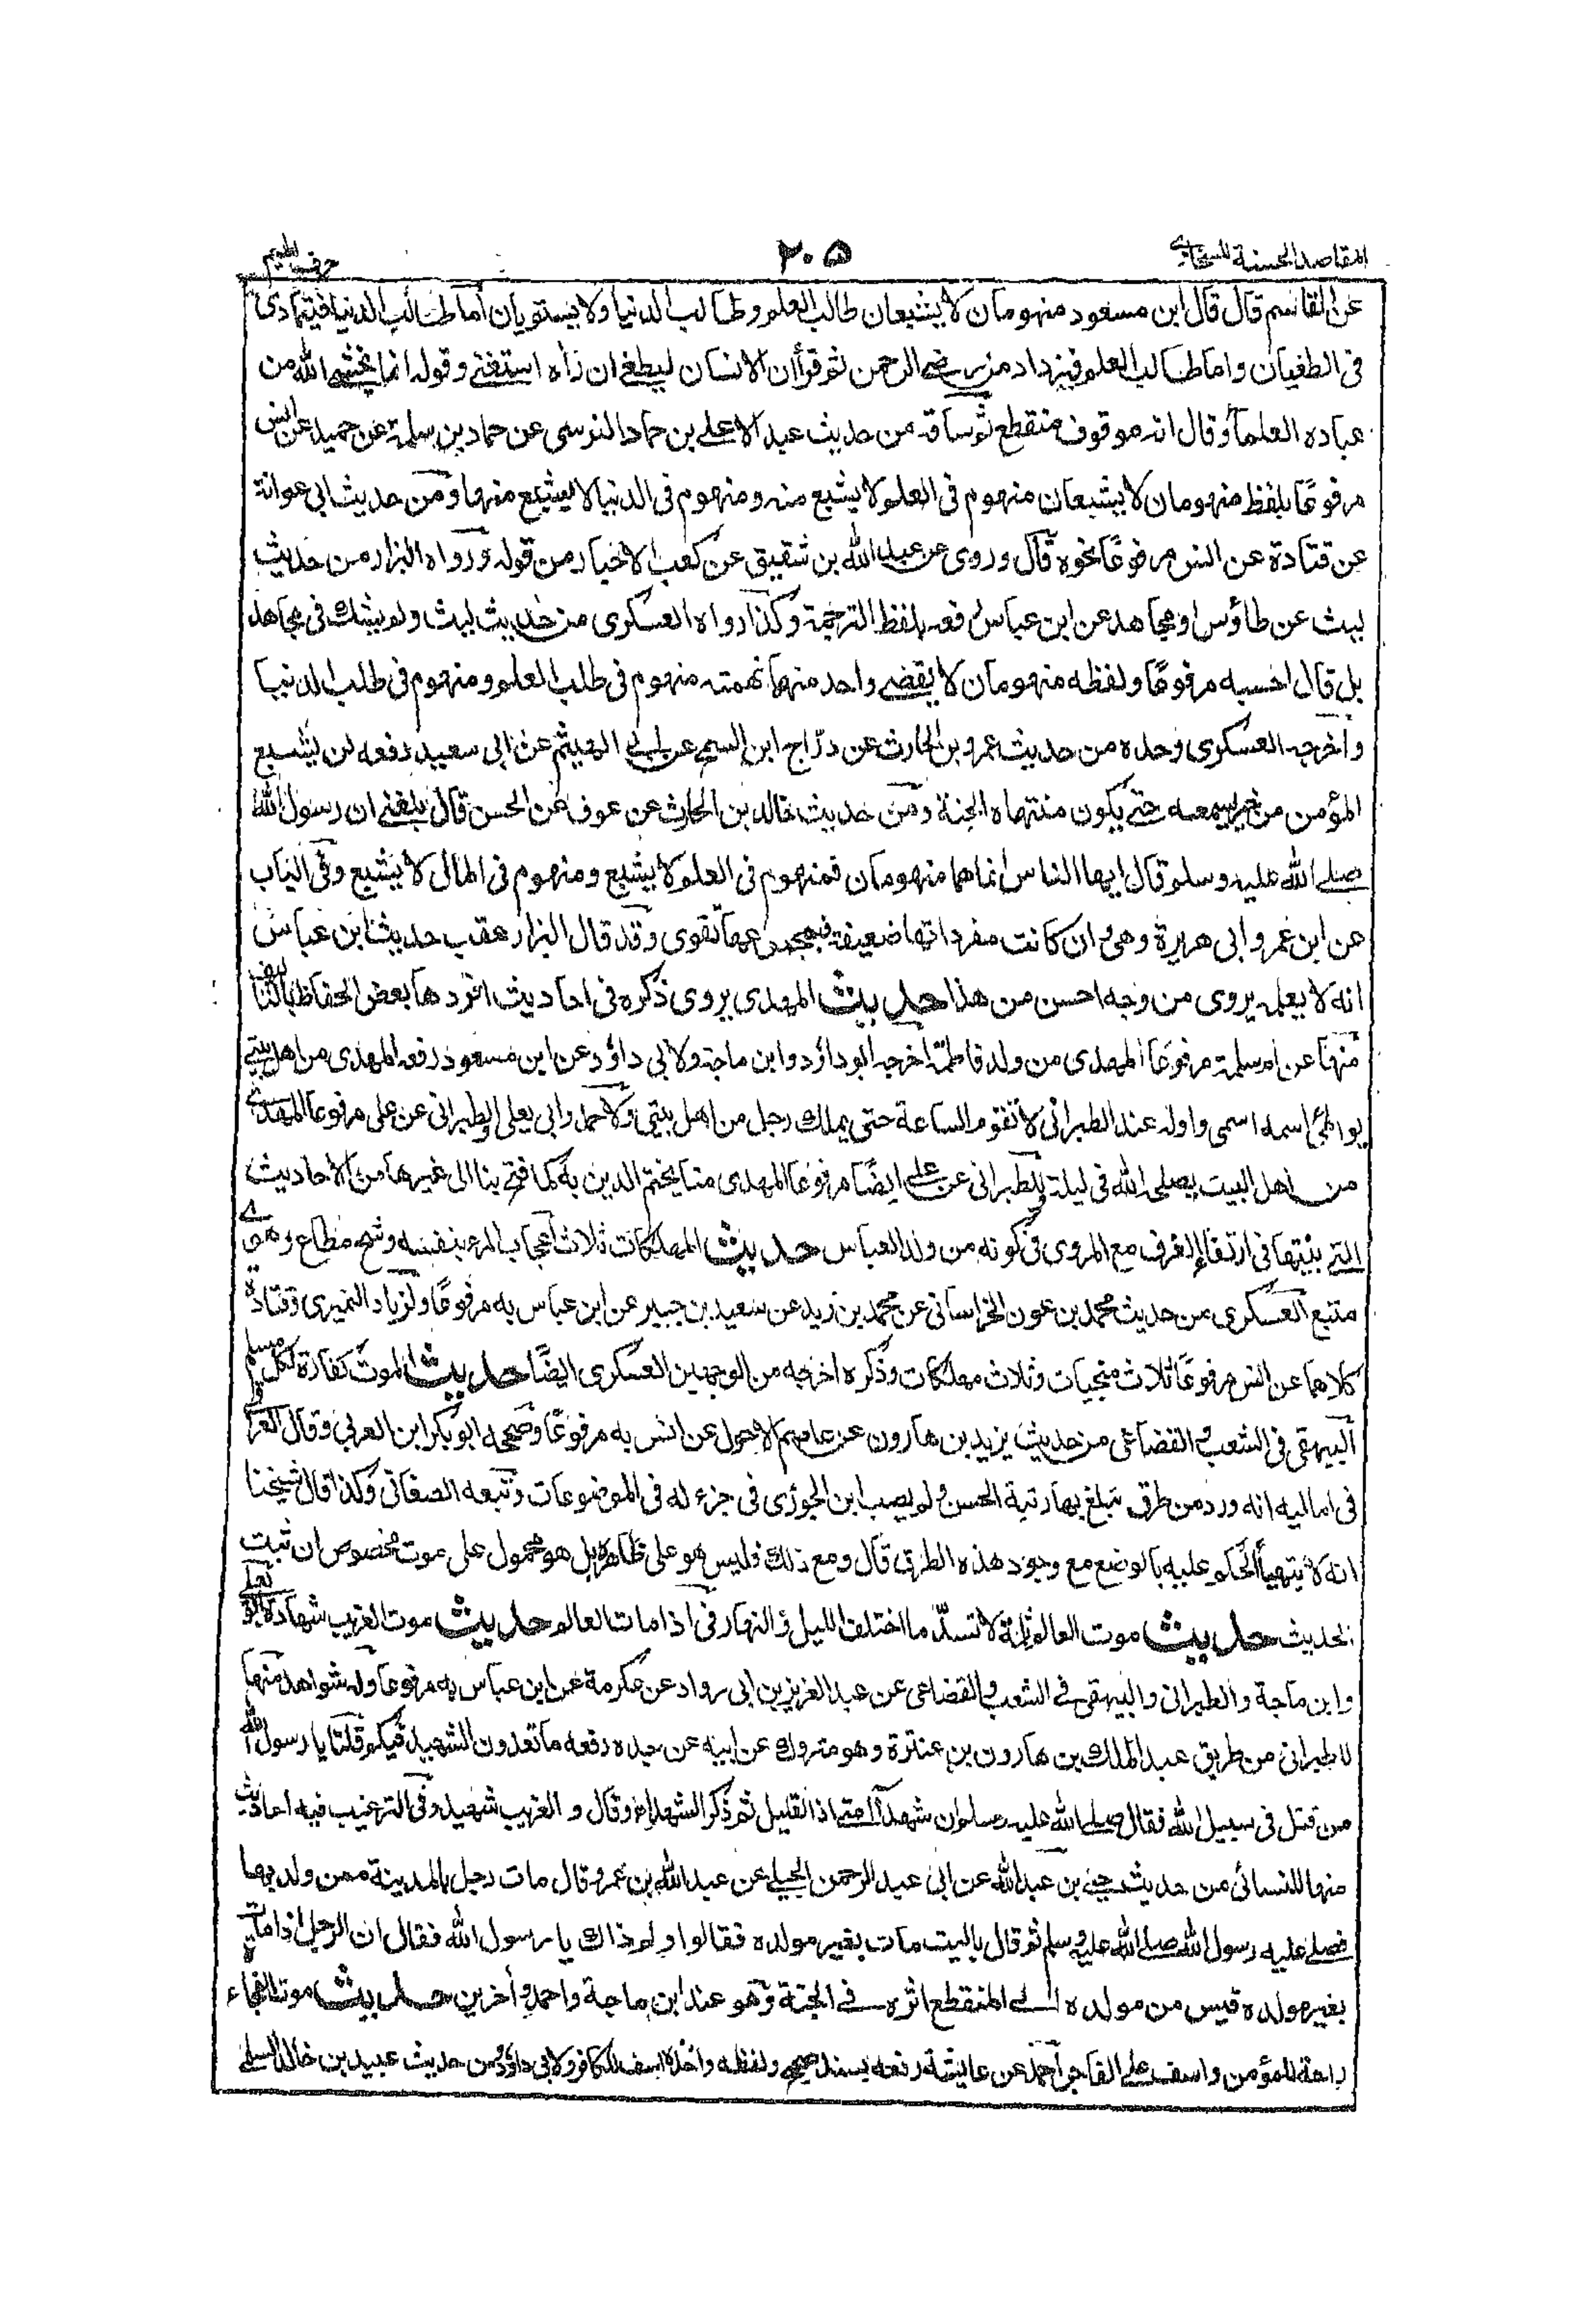 المقاصد الحسنة للسخاوي
٢٠٥
حرف الميم
عن القاسم قال قال ابن مسعود منهومان لا يشبعان طالب العلم وطالب الدنيا ولا يستويان أما طالب الدنيا فيتمادى
فى الطغيان واما طالب العلم فيزداد من رضى الرحمن ثم قرأ ان الانسان ليطغى ان رآه استغنى وقوله انما يخشى الله من
عباده العلمأ وقال انه موقوف منقطع ثم ساقه من حديث عبد الاعلى بن حماد النرسى عن حماد بن سلمة عن حميد عن انس
مرفوعًا بلفظ منهومان لا يشبعان منهوم فى العلم لا يشبع منه ومنهوم فى الدنيا لا يشبع منها ومن حديث ابى عوانة
عن قتادة عن انس مرفوعًا نحوه قال وروى عن عبد الله بن شقيق عن كعب الاخبار من قوله ورواه البزار من حديث
ليث عن طاؤس او مجاهد عن ابن عباس رفعه بلفظ الترجمة وكذا رواه العسكرى من حديث ليث ولم يشك فى مجاهد
بل قال احسبه مرفوعًا ولفظه منهومان لا يقضى واحد منهما نهمته منهوم فى طلب العلم ومنهوم فى طلب الدنيا
واخرجه العسكرى وحده من حديث عمرو بن الحارث عن درّاج ابن السمح عن ابى الهيثم عن ابى سعيد رفعه لن يشبع
المؤمن من خير يسمعه حتى يكون منتهاه الجنة ومن حديث خالد بن الحارث عن عوف عن الحسن قال بلغنى ان رسول الله
صلى الله عليه وسلم قال ايها الناس انما هما منهومان فمنهوم فى العلم لا يشبع ومنهوم فى المال لا يشبع وفى الباب
عن ابن عمر وابى هريرة وهى وان كانت مفرداتها ضعيفة فبمجموعها تقوى وقد قال البزار عقب حديث ابن عباس
انه لا يعلمه يروى من وجه احسن من هذا حديث المهدى يروى ذكره فى احاديث افردها بعض الحفاظ بالتاليف
منها عن ام سلمة مرفوعًا المهدى من ولد فاطمة اخرجه ابو داؤد وابن ماجة ولابى داؤد عن ابن مسعود رفعه المهدى من اهل بيتى
يواطئ اسمه اسمى واوله عند الطبرانى لا تقوم الساعة حتى يملك رجل من اهل بيتى ولاحمد وابى يعلى والطبرانى عن على مرفوعا المهدى
من اهل البيت يصلحه الله فى ليلة وللطبرانى عن على ايضًا مرفوعا المهدى منا يختم الدين به كما فتح بنا الى غيرها من الاحاديث
التى بينتها فى ارتقاء الغرف مع المروى فى كونه من ولد العباس حديث المهلكات ثلاث اعجاب المرء بنفسه وشح مطاع وهوى
متبع العسكرى من حديث محمد بن عون الخراسانى عن محمد بن زيد عن سعيد بن جبير عن ابن عباس به مرفوعًا ولزياد النميرى وقتادة
كلاهما عن انس مرفوعًا ثلاث منجيات وثلاث مهلكات وذكره اخرجه من الوجهين العسكرى ايضًا حديث الموت كفارة لكل مسلم
البيهقى فى الشعب والقضاعى من حديث يزيد بن هارون عن عاصم الاحول عن انس به مرفوعًا وصححه ابو بكر ابن العربى وقال العراقى
فى اماليه انه ورد من طرق تبلغ بها رتبة الحسن ولم يصب ابن الجوزى فى جزء له فى الموضوعات وتبعه الصغانى وكذا قال شيخنا
انه لا يتهيأ الحكم عليه بالوضع مع وجود هذه الطرق قال ومع ذلك فليس هو على ظاهره بل هو محمول على موت مخصوص ان ثبت
الحديث حديث موت العالم ثلمة لا تسدّ ما اختلف الليل والنهار فى اذا مات العالم حديث موت الغريب شهادة ابو يعلى
وابن ماجة والطبرانى والبيهقى فى الشعب والقضاعى عن عبد العزيز بن ابى رواد عن عكرمة عن ابن عباس به مرفوعا وله شواهد منها
للطبرانى من طريق عبد الملك بن هارون بن عنترة وهو متروك عن ابيه عن جده رفعه ما تعدون الشهيد فيكم قلنا يا رسول الله
من قتل فى سبيل الله فقال صلى الله عليه وسلم ان شهدآ امتى اذا لقليل ثم ذكر الشهداء وقال و الغريب شهيد وفى الترغيب فيه احاديث
منها للنسائى من حديث حيى بن عبد الله عن ابى عبد الرحمن الحبلى عن عبد الله بن عمرو قال مات رجل بالمدينة ممن ولد بها
فصلى عليه رسول الله صلى الله عليه وسلم ثم قال ياليت مات بغير مولده فقالوا ولم ذاك يا رسول الله فقال ان الرجل اذا مات
بغير مولده قيس من مولده الى المنقطع اثره فى الجنة وهو عند ابن ماجة واحمد وآخرين حديث موت الفجاءة
راحة للمؤمن واسف على الفاجر احمد عن عائشة رفعه بسند صحيح ولفظه واخذة اسف للكافر ولابى داؤد من حديث عبيد بن خالد السلمى